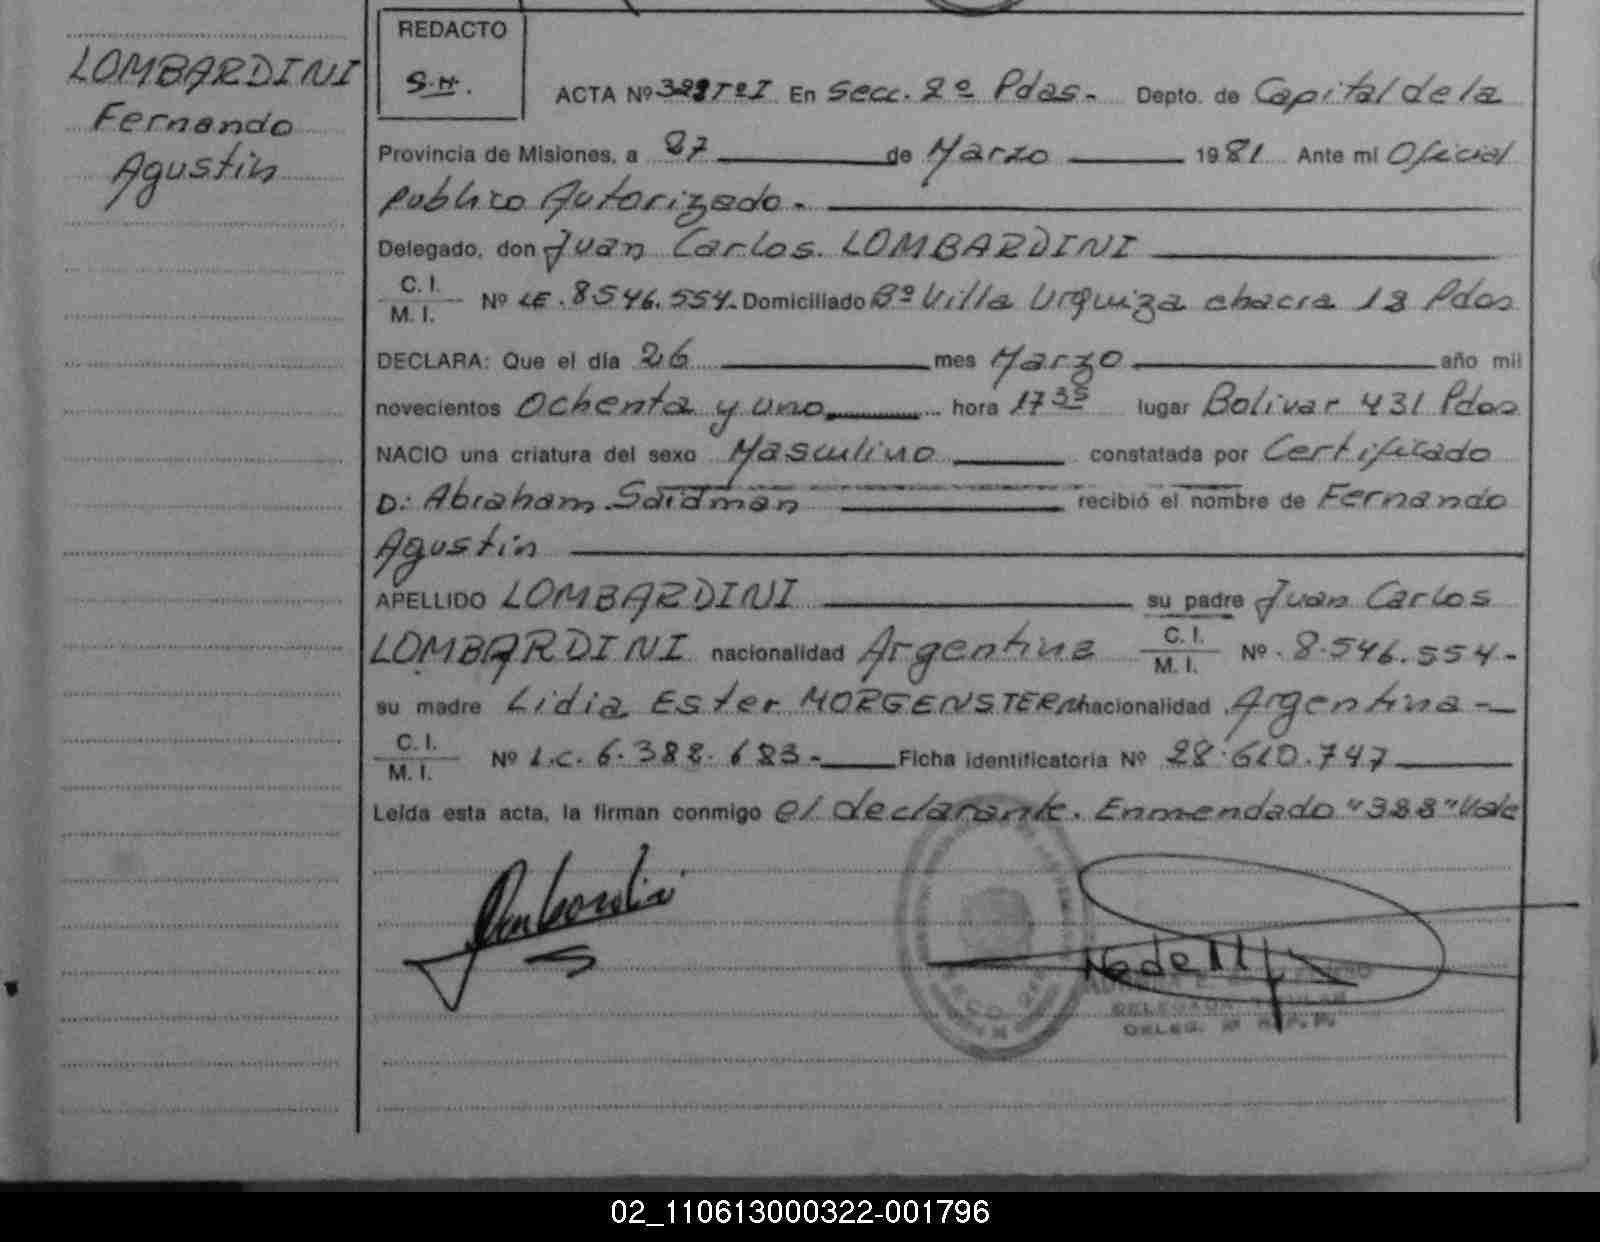 LOMBARDINI
Fernando
Agustín
REDACTO
S.H.
ACTA Nº 388 Tº I En Secc. 2º Pdas- Depto. de Capital de la
Provincia de Misiones, a 27 de Marzo 1981 Ante mi Oficial
Publico Autorizado -
Delegado, don Juan Carlos LOMBARDINI
C. I.
M. I. Nº LE. 8546.554- Domiciliado Bº Villa Urquiza chacra 18 Pdas
DECLARA: Que el día 26 mes Marzo año mil
novecientos Ochenta y uno hora 17 35 lugar Bolivar 431 Pdas
NACIO una criatura del sexo Masculino constatada por Certificado
D: Abraham Saidman recibió el nombre de Fernando
Agustín
APELLIDO LOMBARDINI su padre Juan Carlos
LOMBARDINI nacionalidad Argentina C. I.
M. I. Nº 8.546.554-
su madre Lidia Ester MORGENSTERN nacionalidad Argentina -
C. I.
M. I. Nº L.C. 6.388.683- Ficha identificatoria Nº 28.610.747
Leída esta acta, la firman conmigo el declarante. Enmendado "388" Vale
DELEGADA TITULAR
DELEG.
02_110613000322-001796